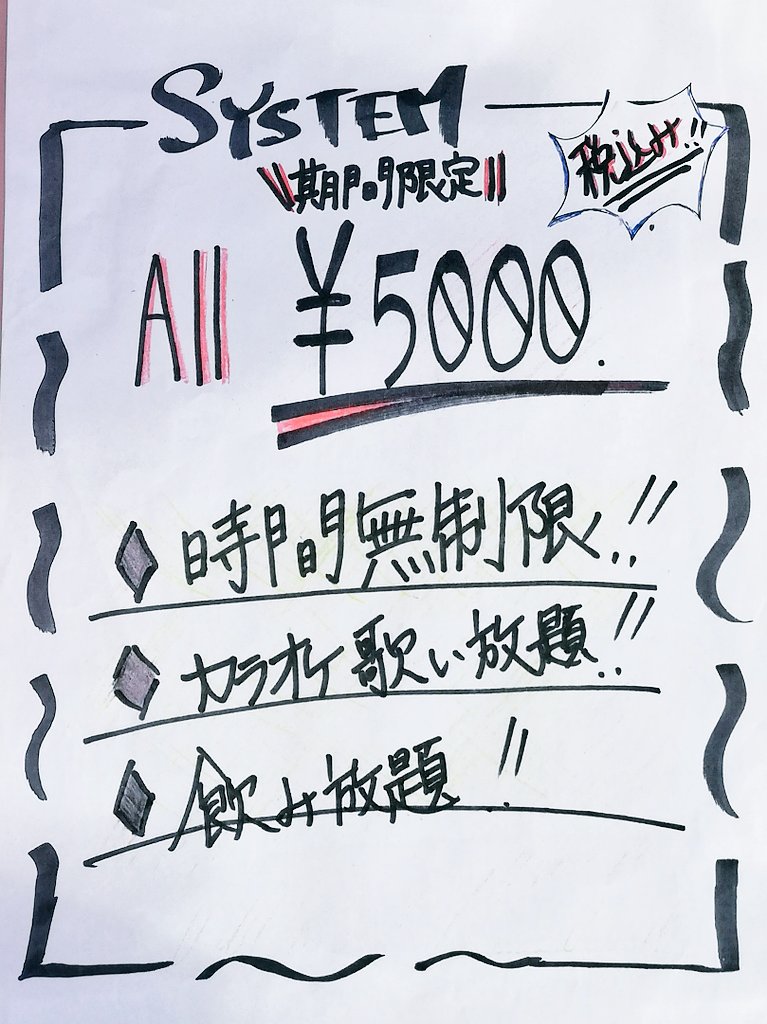 SYSTEM
税込み!!
\\期間限定||
All ¥5000.
◆時間無制限!!
◆カラオケ歌い放題!!
◆飲み放題!!